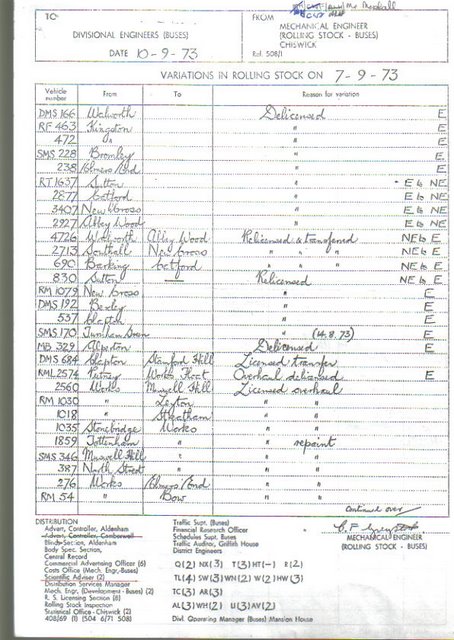 TO
DIVISIONAL ENGINEERS (BUSES)
DATE 10-9-73
FROM
MECHANICAL ENGINEER
(ROLLING STOCK - BUSES)
CHISWICK
Ref. 508/1
VARIATIONS IN ROLLING STOCK ON 7-9-73
Vehicle number From To Reason for variation
DMS 166 Walworth Delicensed E
RF 463 Kingston " E
472 " " E
SMS 228 Bromley " E
238 Elmers End " E
RT 1637 Sutton " E to NE
2877 Catford " E to NE
3407 New Cross " E to NE
2927 Abbey Wood " E to NE
4726 Walworth Abbey Wood Relicensed & transferred NE to E
2713 Southall New Cross " " " NE to E
690 Barking Catford " " " NE to E
830 Sutton — Relicensed NE to E
RM 1079 New Cross " E
DMS 192 Bexley " E
537 Clapton " E
SMS 170 Turnham Green " (14.8.73) E
MB 329 Alperton Delicensed E
DMS 684 Clapton Stamford Hill Licensed transfer
RML 2574 Putney Works Float Overhaul delicensed E
2560 Works Muswell Hill Licensed overhaul
RM 1030 " Leyton " "
1018 " Streatham " "
1035 Stonebridge Works " "
1859 Tottenham " " repaint
SMS 346 Muswell Hill " " "
387 North Street " " "
276 Works Elmers End " "
RM 54 " Bow " "
Continued over
MECHANICAL ENGINEER
(ROLLING STOCK - BUSES)
DISTRIBUTION
Advert. Controller, Aldenham
Advert. Controller, Camberwell
Blind Section, Aldenham
Body Spec. Section,
Central Record
Commercial Advertising Officer (6)
Costs Office (Mech. Engr.-Buses)
Scientific Adviser (2)
Distribution Services Manager
Mech. Engr. (Development - Buses) (2)
R. S. Licensing Section (8)
Rolling Stock Inspection
Statistical Office - Chiswick (2)
408/69 (1) (504 6/71 508)
Traffic Supt. (Buses)
Financial Research Officer
Schedules Supt. Buses
Traffic Auditor, Griffith House
District Engineers
Q(2) NX(3) T(3) HT(-) R(2)
TL(4) SW(3) WN(2) W(2) HW(3)
TC(3) AR(3)
AL(3) WH(2) U(3) AV(2)
Divl. Operating Manager (Buses) Mansion House